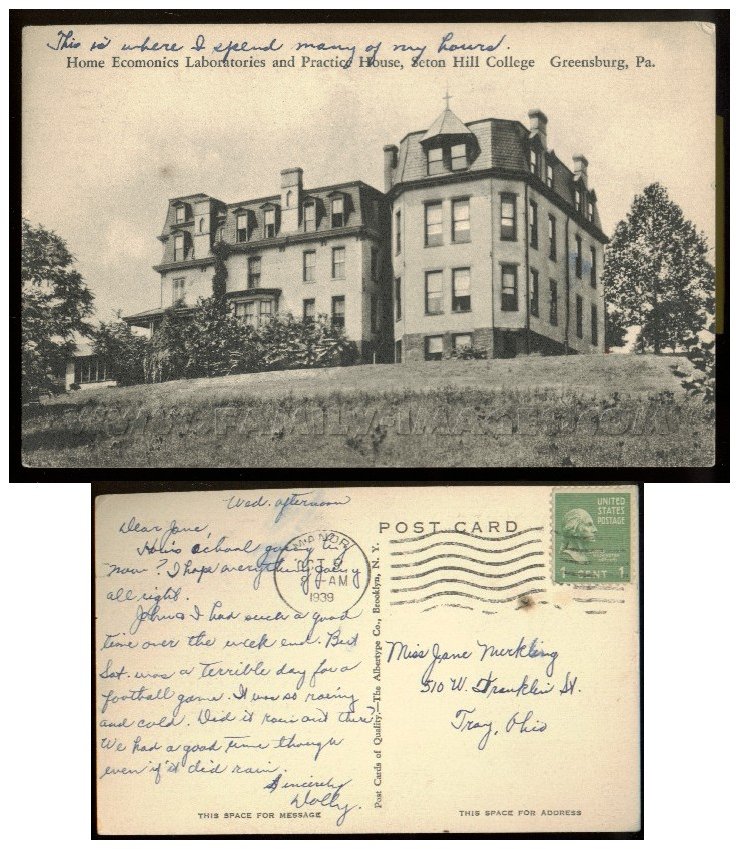 This is where I spend many of my hours.
Home Ecomonics Laboratories and Practice House, Seton Hill College Greensburg, Pa.
WWW.FAMILY-IMAGES.COM
Wed. afternoon
Dear Jane,
How's school going by
now? I hope everything going
all right.
John & I had such a good
time over the week end. But
Sat. was a terrible day for a
football game. It was so rainy
and cold. Did it rain out there?
We had a good time though
even if it did rain.
Sincerely
Dolly.
THIS SPACE FOR MESSAGE
MANOR
OCT
8 AM
1939
Post Cards of Quality.—The Albertype Co., Brooklyn, N. Y.
POST CARD
UNITED
STATES
POSTAGE
1 CENT 1
Miss Jane Merkling
510 W. Franklin St.
Troy, Ohio
THIS SPACE FOR ADDRESS